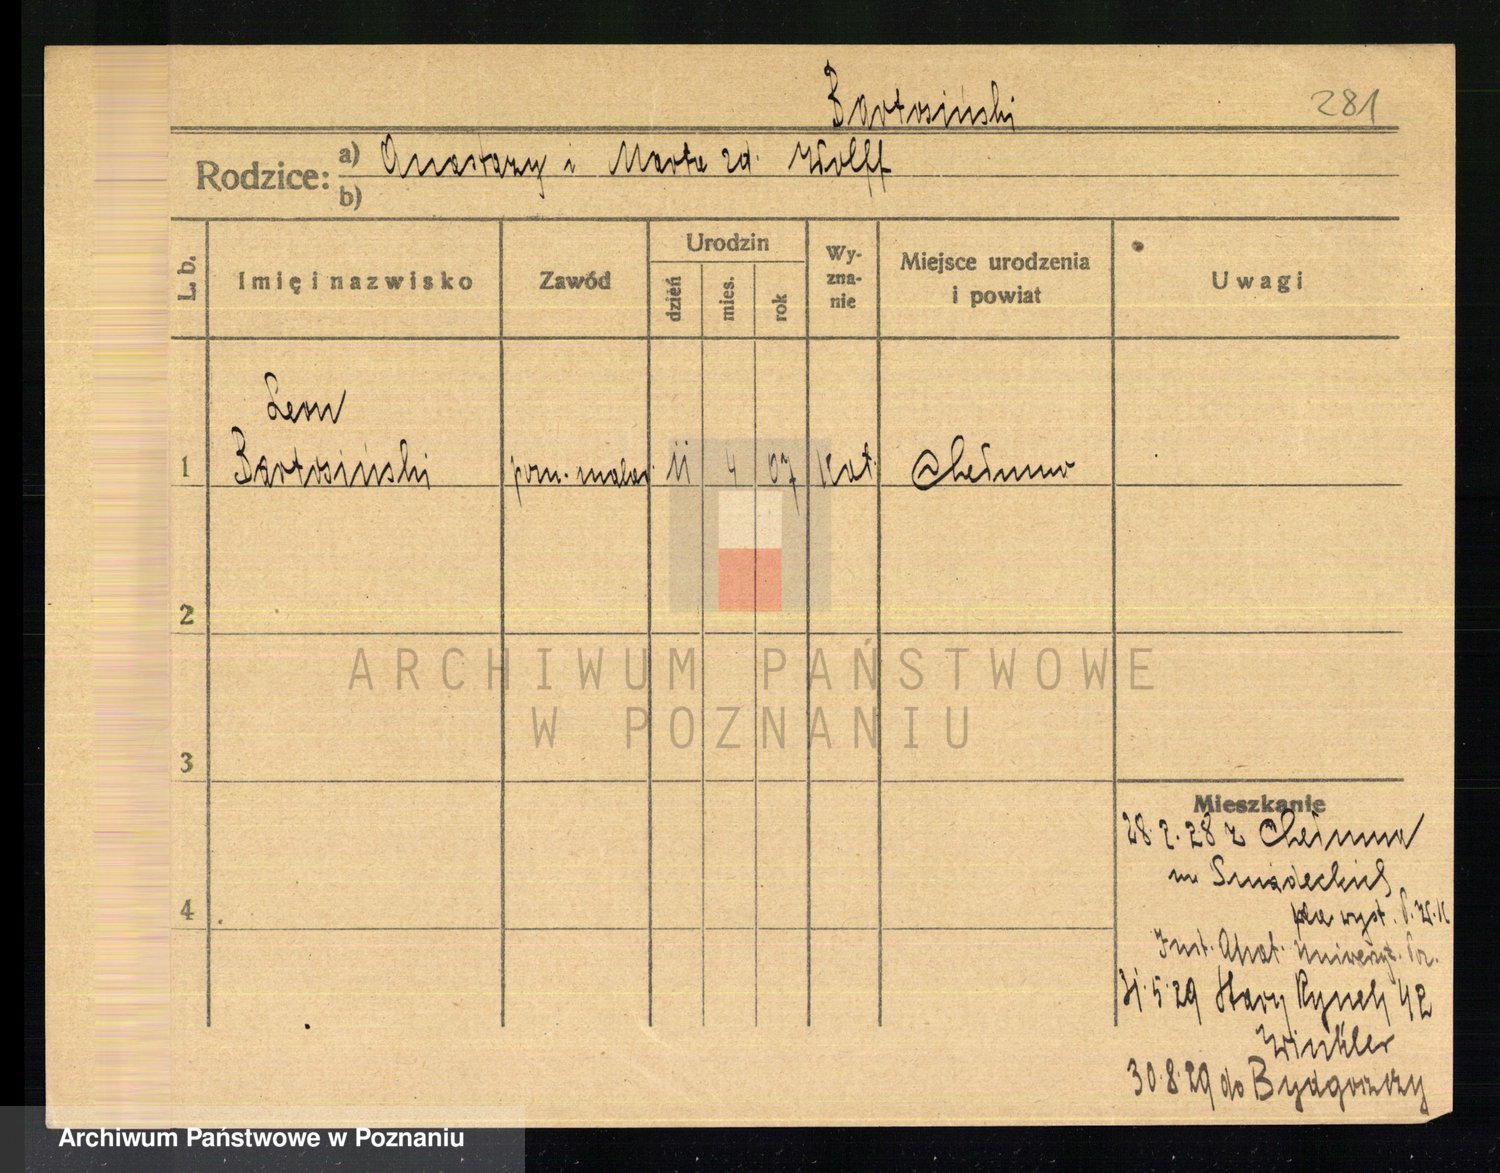 Bartosiński 281
Rodzice: a) Anastazy i Marta zd. Wolff
b)
L. b. Imię i nazwisko Zawód Urodzin dzień mies. rok Wy-zna-nie Miejsce urodzenia i powiat Uwagi
Leon
1 Bartosiński pom. malar. 11 4 07 kat. Chełmno
2
ARCHIWUM PAŃSTWOWE
W POZNANIU
3
Mieszkanie
28.2.28 z Chełmna
Śniadeckich
4
wyst. P.W.K
Inst. Anat. Uniwersyt. Poz.
31.5.29 Stary Rynek 42
Winkler
30.8.29 do Bydgoszczy
Archiwum Państwowe w Poznaniu